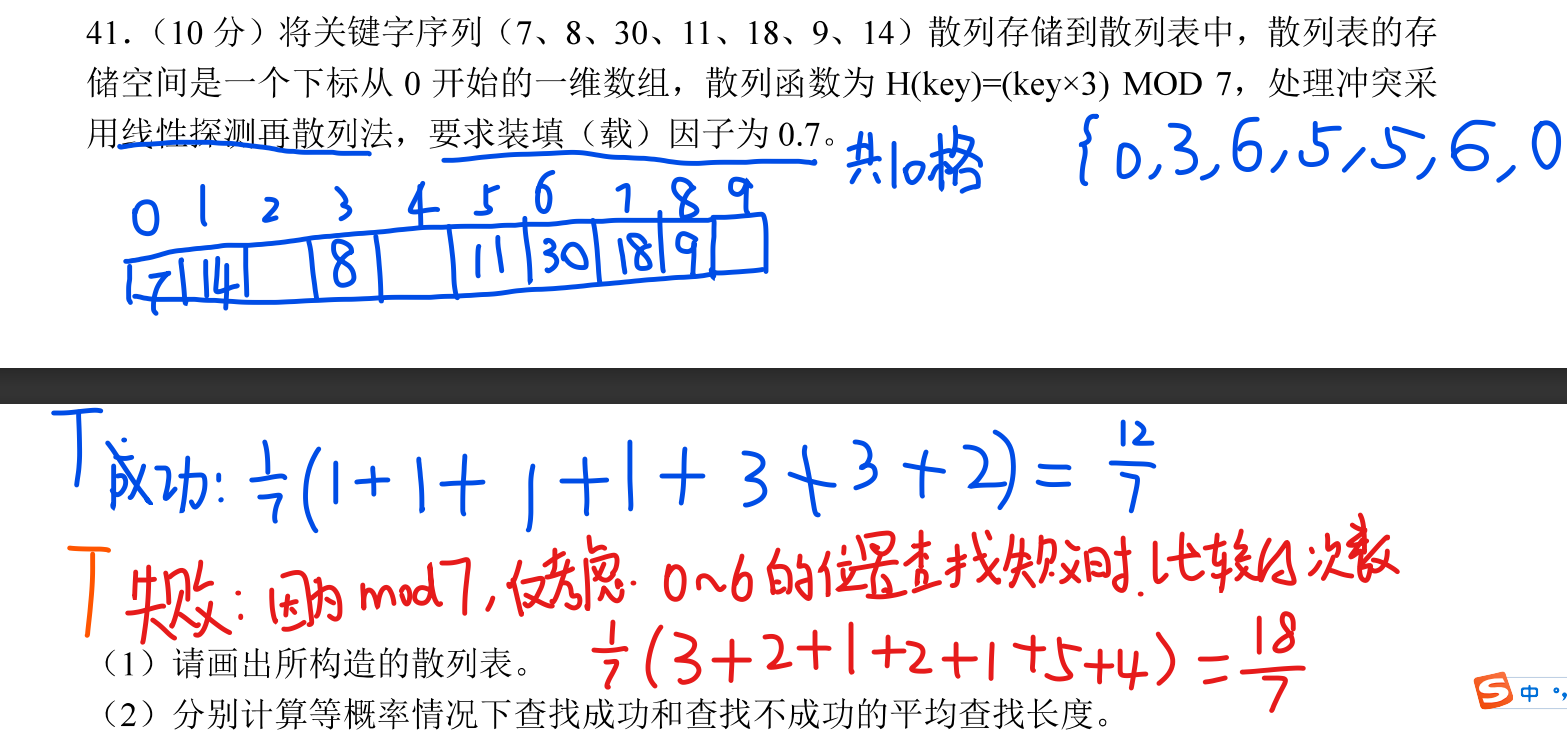 41.（10 分）将关键字序列（7、8、30、11、18、9、14）散列存储到散列表中，散列表的存
储空间是一个下标从 0 开始的一维数组，散列函数为 H(key)=(key×3) MOD 7，处理冲突采
用线性探测再散列法，要求装填（载）因子为 0.7。
共10格 {0,3,6,5,5,6,0
0 1 2 3 4 5 6 7 8 9
7 14 8 11 30 18 9
T成功: 1/7(1+1+1+1+3+3+2)=12/7
T失败: 因为mod7,仅考虑 0~6的位置查找失败时比较的次数
1/7(3+2+1+2+1+5+4)=18/7
（1）请画出所构造的散列表。
（2）分别计算等概率情况下查找成功和查找不成功的平均查找长度。
S中°,